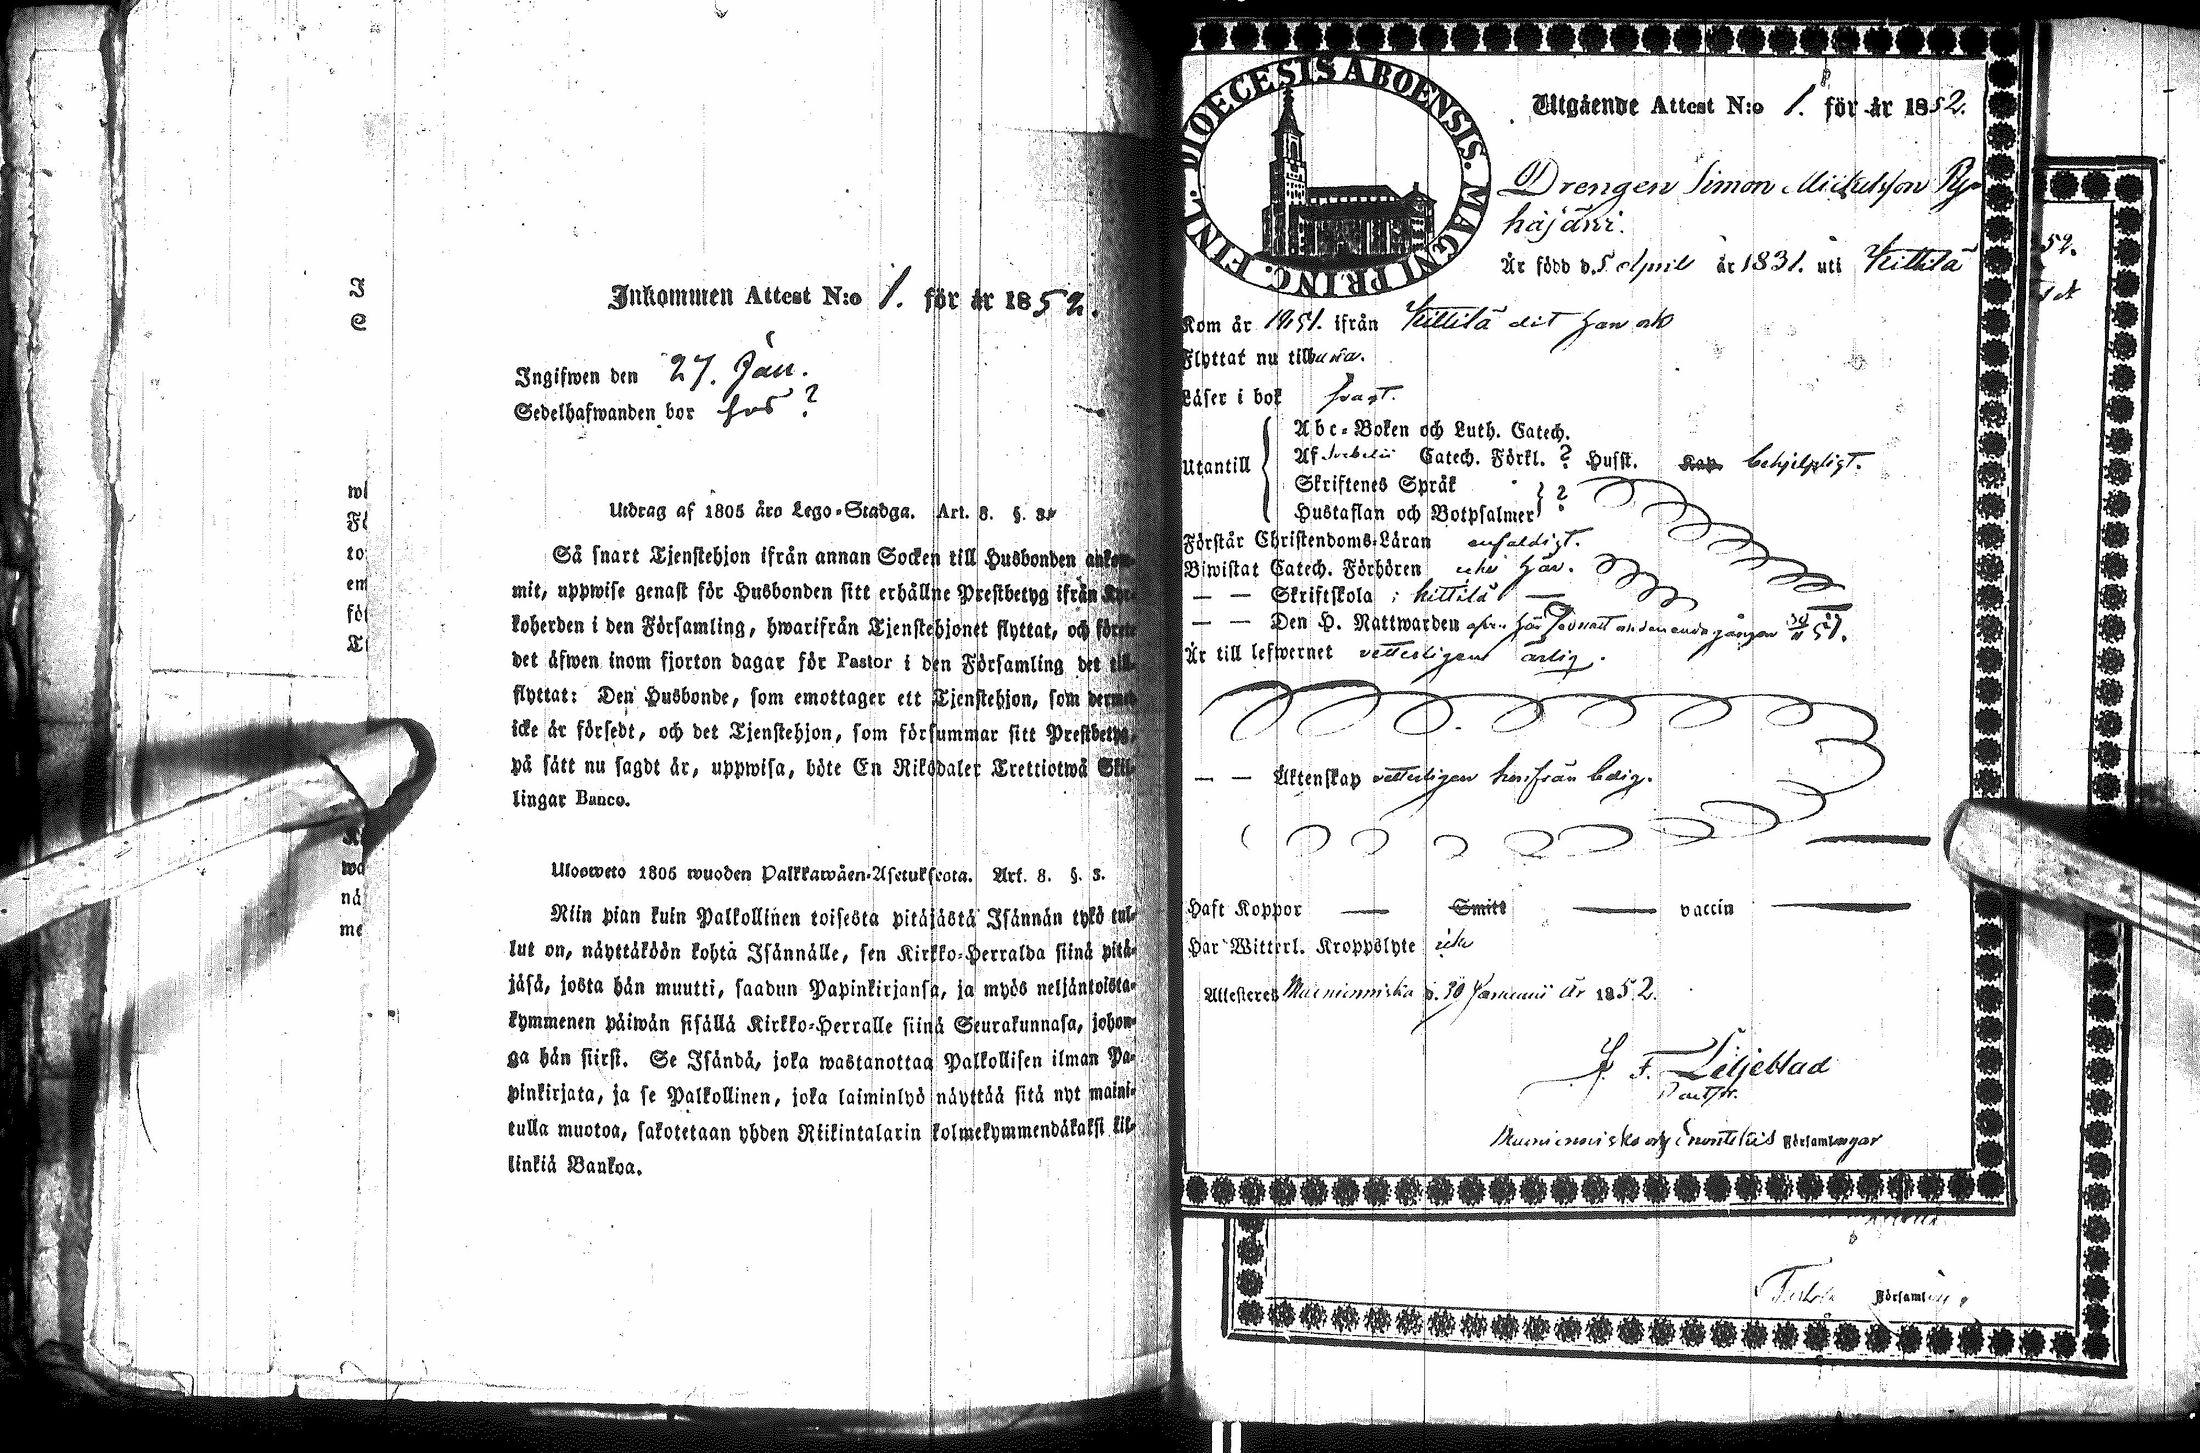 Inkommen Attest N:o 1. för år 1852.
Ingifwen den 27. Jan.
Sedelhafwanden bor hos ?
Utdrag af 1805 års Lego-Stadga. Art. 8. §. 3.
Så snart Tjenstehjon ifrån annan Socken till Husbonden ankom-
mit, uppwise genast för Husbonden sitt erhållne Prestbetyg ifrån Kyr-
koherden i den Församling, hwarifrån Tjenstehjonet flyttat, och förete
det äfwen inom fjorton dagar för Pastor i den Församling det till-
flyttat: Den Husbonde, som emottager ett Tjenstehjon, som dermed
icke är försedt, och det Tjenstehjon, som försummar sitt Prestbetyg,
på sätt nu sagdt är, uppwisa, böte En Riksdaler Trettiotwå Skil-
lingar Banco.
Ulosweto 1805 wuoden Palkkawäen-Asetuksesta. Art. 8. §. 3.
Niin pian kuin Palkollinen toisesta pitäjästä Isännän tykö tul-
lut on, näyttäköön kohta Isännälle, sen Kirkko-Herralda siinä pitä-
jäsä, josta hän muutti, saadun Papinkirjansa, ja myös neljäntoista-
kymmenen päiwän sisällä Kirkko-Herralle siinä Seurakunnasa, johon-
ga hän siirst. Se Isändä, joka wastanottaa Palkollisen ilman Pa-
pinkirjata, ja se Palkollinen, joka laiminlyö näyttää sitä nyt maini-
tulla muotoa, sakotetaan yhden Riikintalarin kolmekymmendäkaksi kil-
linkiä Bankoa.
DIOECESIS ABOENSIS. MAGNI PRINC. FINL.
Utgående Attest N:o 1. för år 1852.
Drengen Simon Mickelsson Py-
häjärvi.
Är född d. 5 April år 1831. uti Kittilä
Kom år 1851. ifrån Kittilä dit han
Flyttat nu till
Läser i bok svagt.
Utantill
Abc-Boken och Luth. Catech.
Af Svebelii Catech. Förkl. ? Husst. behjelpligt.
Skriftenes Språk
Hustaflan och Botpsalmer ?
Förstår Christendoms-Läran enfaldigt.
Biwistat Catech. Förhören icke här.
— — Skriftskola i Kittilä —
— — Den H. Nattwarden
Är till lefwernet vetterligen ärlig.
— — Äktenskap vetterligen härifrån ledig.
Haft Koppor — Smitt — vaccin —
Har Witterl. Kroppslyte icke
Attesteras Muonionniska d. 30 Januarii år 1852.
J. F. Liljeblad
Muonionniska och Enontekis Församlingar
52.
Församling